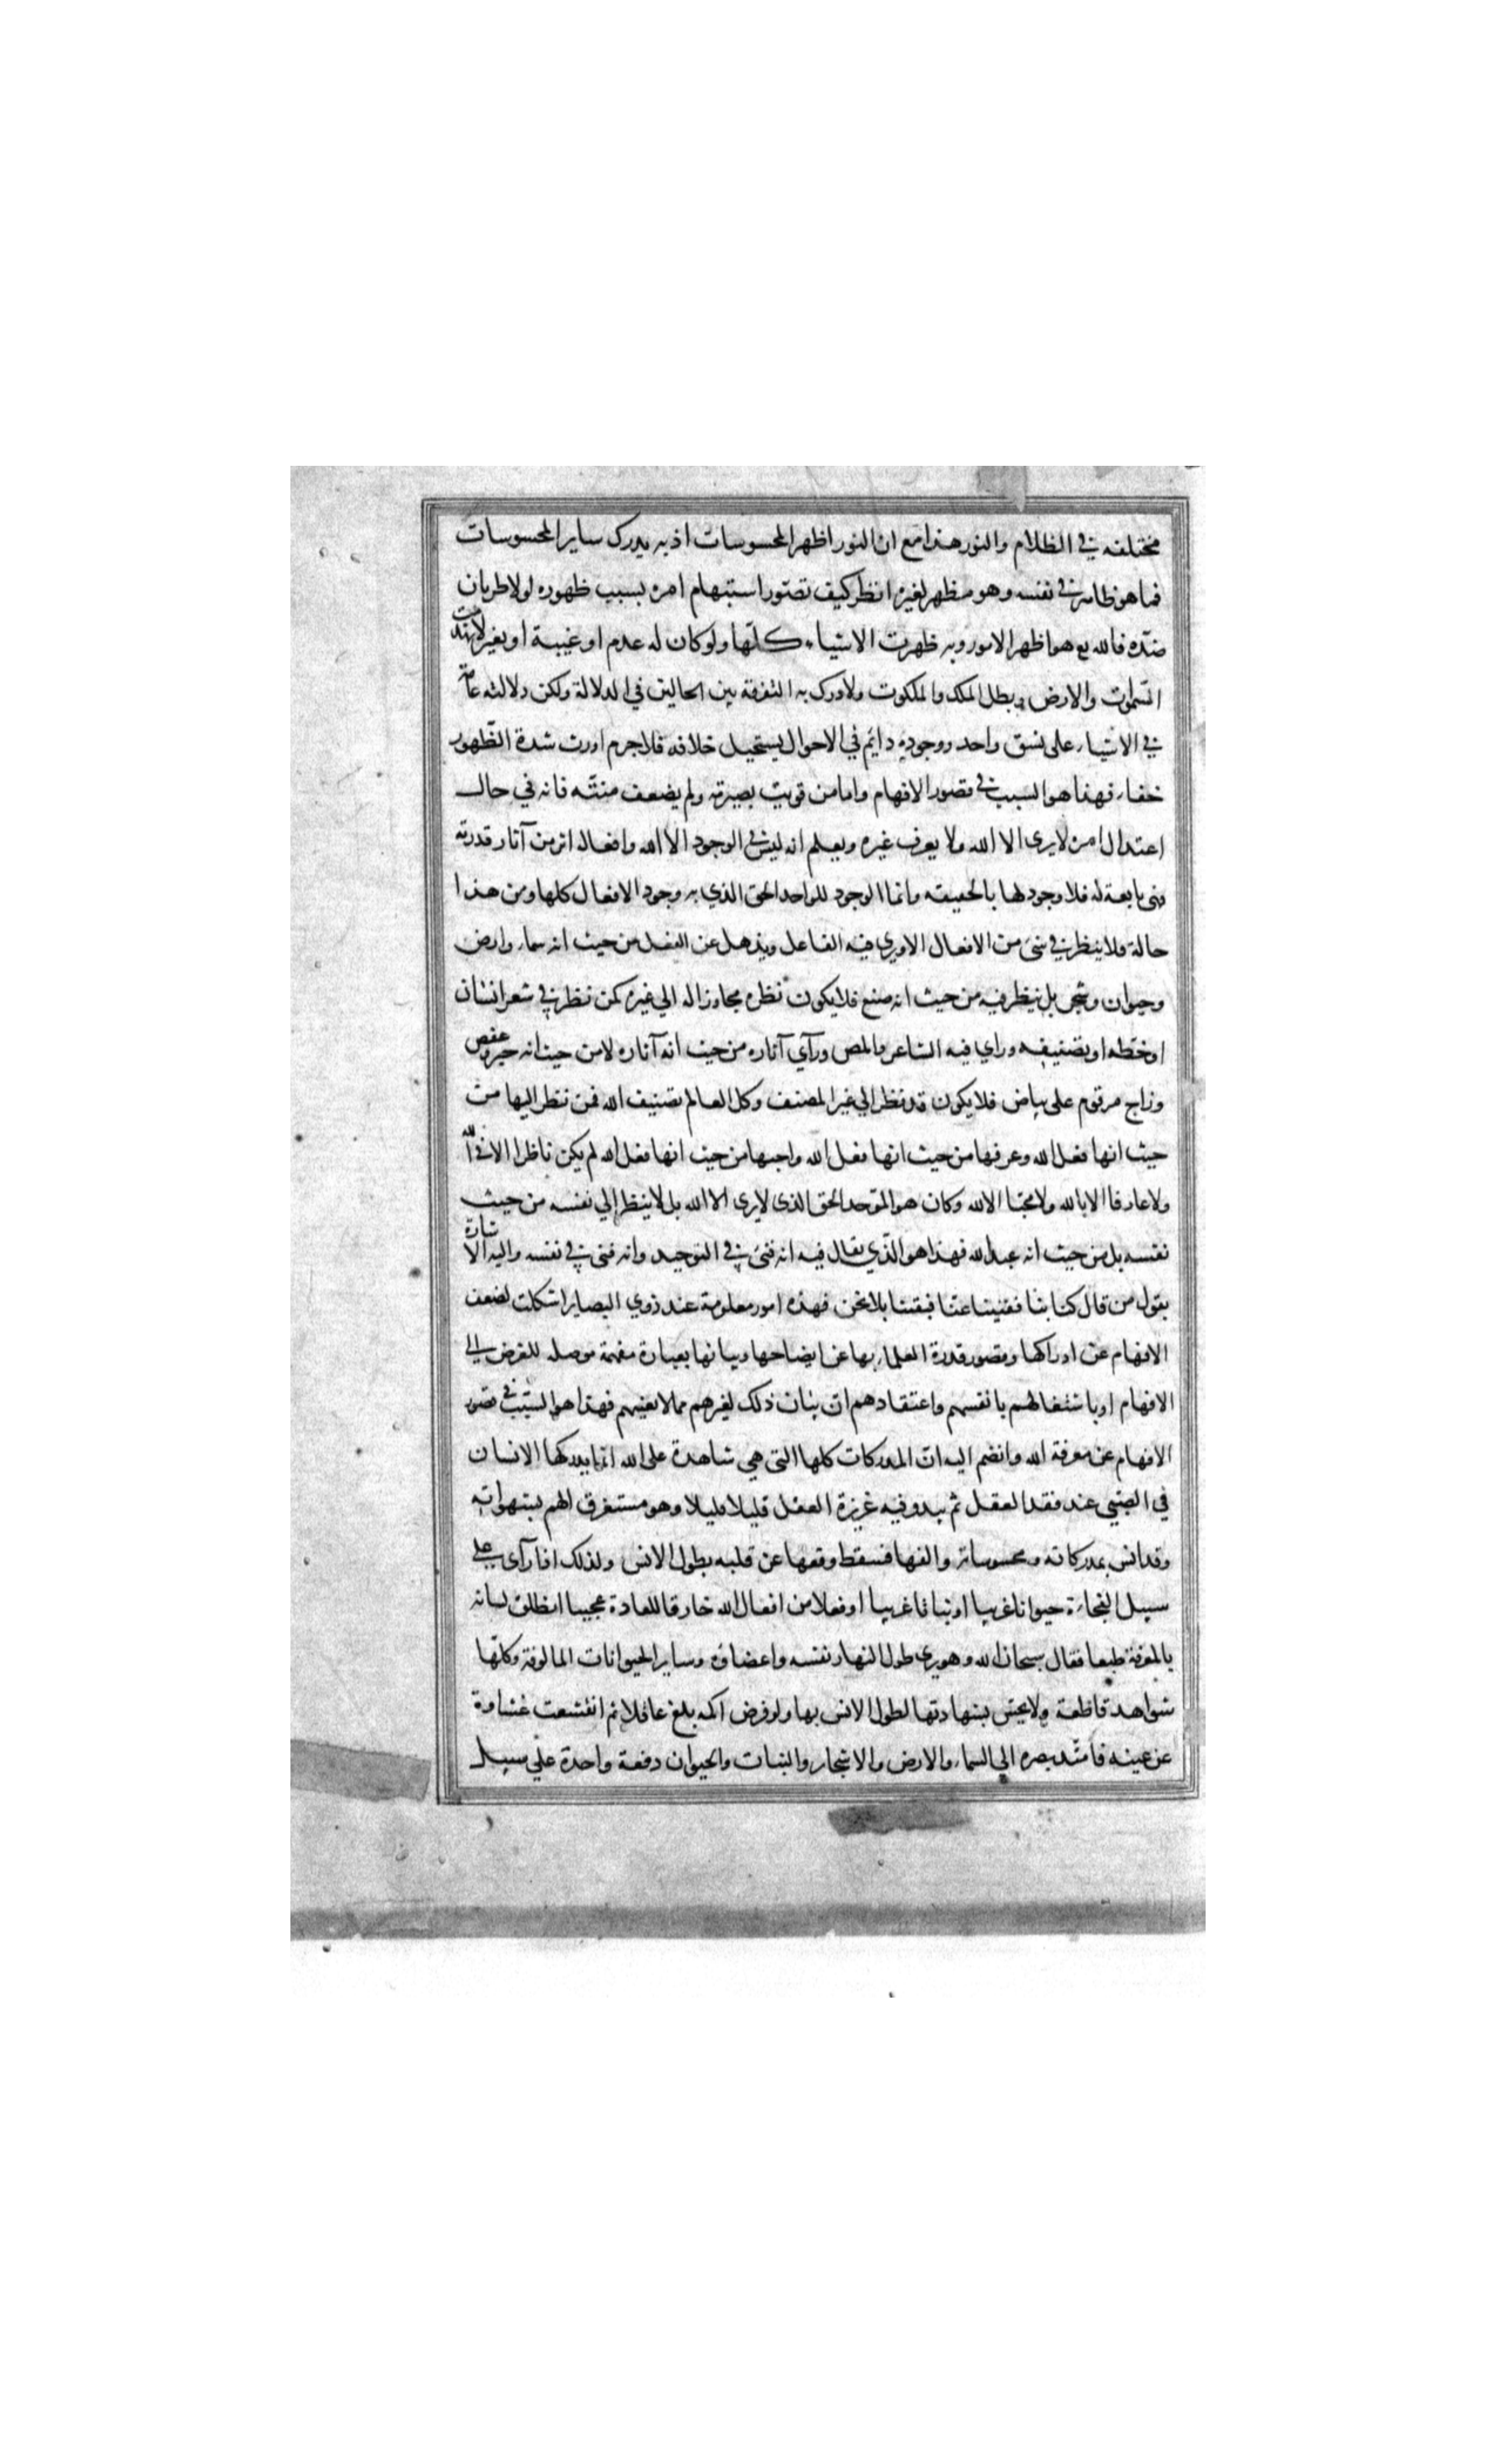 مختلفه في الظلام والنور هذا مع ان النور اظهر المحسوسات اذ به يدرك ساير المحسوسات
فما هو ظاهر في نفسه وهو مظهر لغيره انظر كيف تصور استبهام امره بسبب ظهوره لولا طريان
ضدّه فالله تع هو اظهر الامور وبه ظهرت الاشياء كلّها ولو كان له عدم او غيبة او تغير لانهدت
السّموات والارض وبطل الملك والملكوت ولادرك به التفرقة بين الحالين في الدلالة ولكن دلالته عامّة
في الاشياء على نسق واحد ووجوده دايم في الاحوال يستحيل خلافه فلاجرم اورث شدة الظّهور
خفاء فهذا هو السبب في قصور الافهام واما من قويت بصيرته ولم يضعف منتّه فانه في حال
اعتدال امره لا يرى الا الله ولا يعرف غيره ويعلم انه ليس في الوجود الا الله وافعاله اثر من آثار قدرته
فهي تابعة له فلا وجود لها بالحقيقه وانما الوجود للواحد الحق الذي به وجود الافعال كلها ومن هذا
حاله فلا ينظر في شئ من الافعال الا ويرى فيه الفاعل ويذهل عن الفعل من حيث انه سماء وارض
وحيوان وشجر بل ينظر فيه من حيث انه صنع فلا يكون نظره مجاوزا له الي غيره كمن نظر في شعر انسان
او خطه او تصنيفه وراي فيه الشاعر والمص ورآي آثاره من حيث انه آثاره لا من حيث انه حبر وعفص
وزاج مرقوم على بياض فلا يكون قد نظر الي غير المصنف وكل العالم تصنيف الله فمن نظر اليها من
حيث انها فعل الله وعرفها من حيث انها فعل الله واحبها من حيث انها فعل الله لم يكن ناظرا الا في الله
ولا عارفا الا بالله ولا محبّا الا لله وكان هو الموّحد الحق الذى لا يرى الا الله بل لا ينظر إلي نفسه من حيث
نفسه بل من حيث انه عبد لله فهذا هو الّذي يقال فيه انه فنى في التوحيد وانه فنى في نفسه واليه الاشارة
بقول من قال كنا بنا ففنينا عنّا فبقينا بلا نحن فهذه امور معلومة عند ذوي البصاير اشكلت لضعف
الافهام عن ادراكها وقصور قدرة العلماء بها عن ايضاحها وبيانها بعبارة مفهمة موصله للغرض الي
الافهام او باشتغالهم بانفسهم واعتقادهم ان بيان ذلك لغيرهم مما لا يعنيهم فهذا هو السّبب في قصور
الافهام عن معرفة الله وانضم اليه انّ المدركات كلها التي هي شاهدة على الله انما يدركها الانسان
في الصّبي عند فقد العقل ثم يبدو فيه غريزة العقل قليلا قليلا وهو مستغرق الهم بشهواته
وقد انس بمدركاته ومحسوساته والفها فسقط وقعها عن قلبه بطول الانس ولذلك اذا رآى على
سبيل الفجاءة حيوانا غريبا او نباتا غريبا او فعلا من افعال الله خارقا للعادة عجيبا انطلق لسانه
بالمعرفة طبعا فقال سبحان الله وهو يرى طول النهار نفسه واعضاؤه وساير الحيوانات المالوفة وكلّها
شواهد قاطعة ولا يحسّ بشهادتها لطول الانس بها ولو فرض اكمه بلغ عاقلا ثم انقشعت غشاوة
عن عينه فامتّد بصره الى السماء والارض والاشجار والنبات والحيوان دفعة واحدة علي سبيل